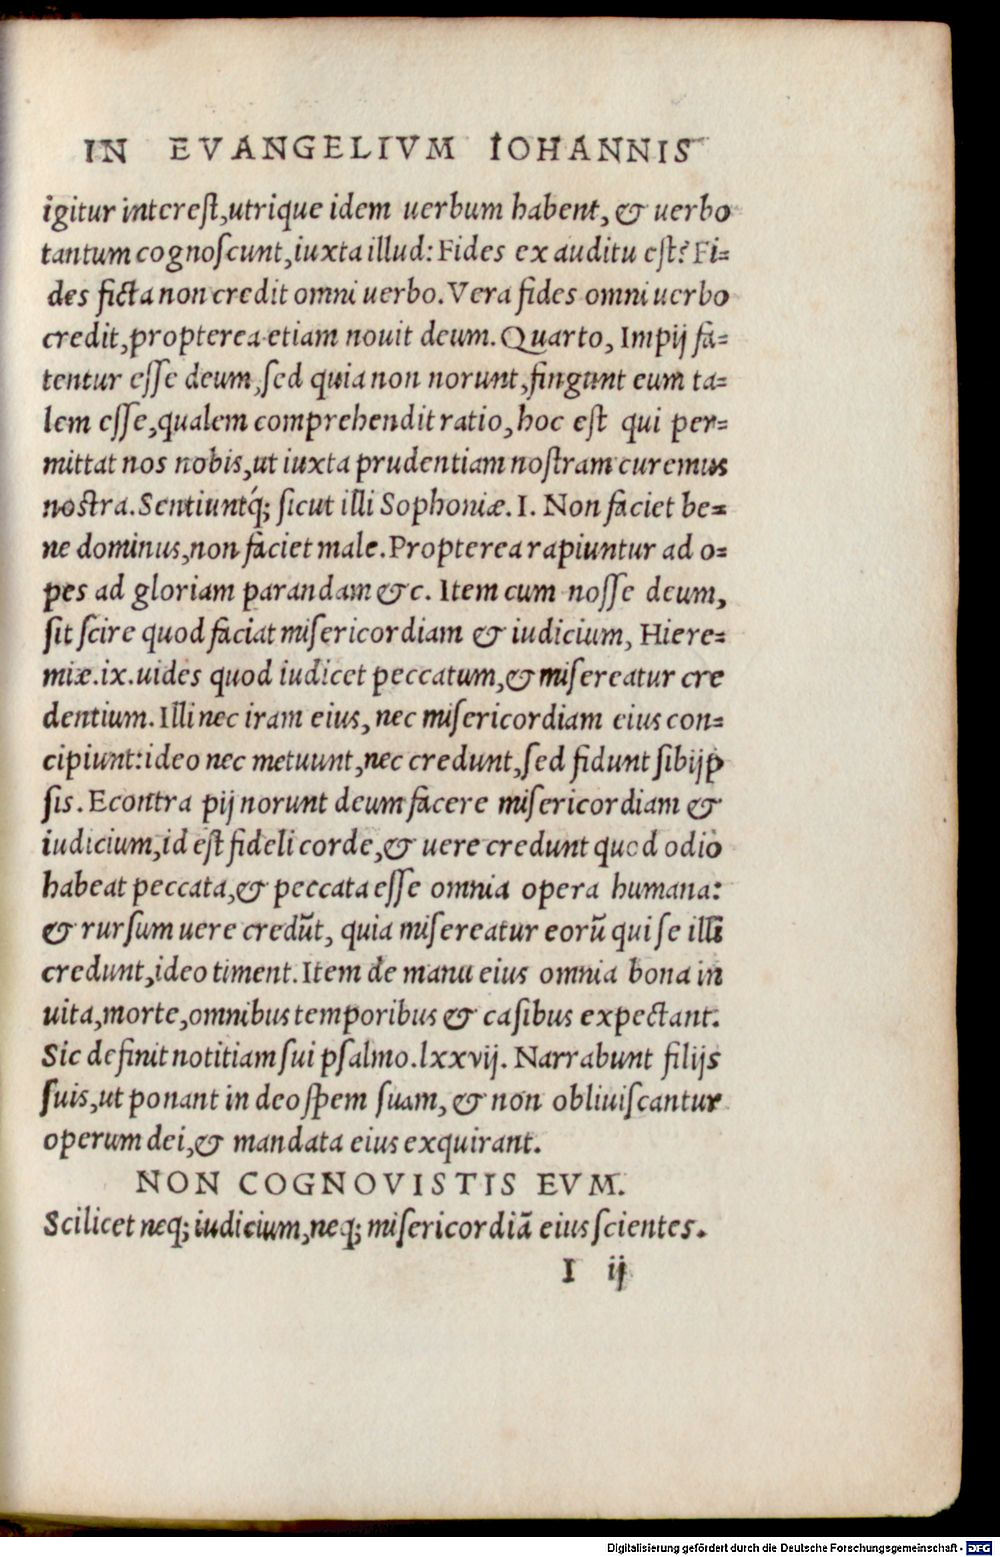 IN EVANGELIVM IOHANNIS
igitur interest,utrique idem uerbum habent, & uerbo
tantum cognoscunt,iuxta illud: Fides ex auditu est? Fi=
des ficta non credit omni uerbo. Vera fides omni uerbo
credit,propterea etiam nouit deum. Quarto, Impij fa=
tentur esse deum,sed quia non norunt,fingunt eum ta=
lem esse,qualem comprehendit ratio,hoc est qui per=
mittat nos nobis,ut iuxta prudentiam nostram curemus
nostra. Sentiuntq́; sicut illi Sophoniæ. I. Non faciet be=
ne dominus,non faciet male. Propterea rapiuntur ad o=
pes ad gloriam parandam &c. Item cum nosse deum,
sit scire quod faciat misericordiam & iudicium, Hiere=
miæ.ix.uides quod iudicet peccatum,& misereatur cre
dentium. Illi nec iram eius, nec misericordiam eius con=
cipiunt:ideo nec metuunt,nec credunt,sed fidunt sibijp
sis. Econtra pij norunt deum facere misericordiam &
iudicium,id est fideli corde,& uere credunt quod odio
habeat peccata,& peccata esse omnia opera humana:
& rursum uere credũt, quia misereatur eorũ qui se illi
credunt,ideo timent. Item de manu eius omnia bona in
uita,morte,omnibus temporibus & casibus expectant.
Sic definit notitiam sui psalmo.lxxvij. Narrabunt filijs
suis,ut ponant in deo spem suam, & non obliuiscantur
operum dei,& mandata eius exquirant.
NON COGNOVISTIS EVM.
Scilicet neq; iudicium,neq; misericordiã eius scientes.
I ij
Digitalisierung gefördert durch die Deutsche Forschungsgemeinschaft - DFG